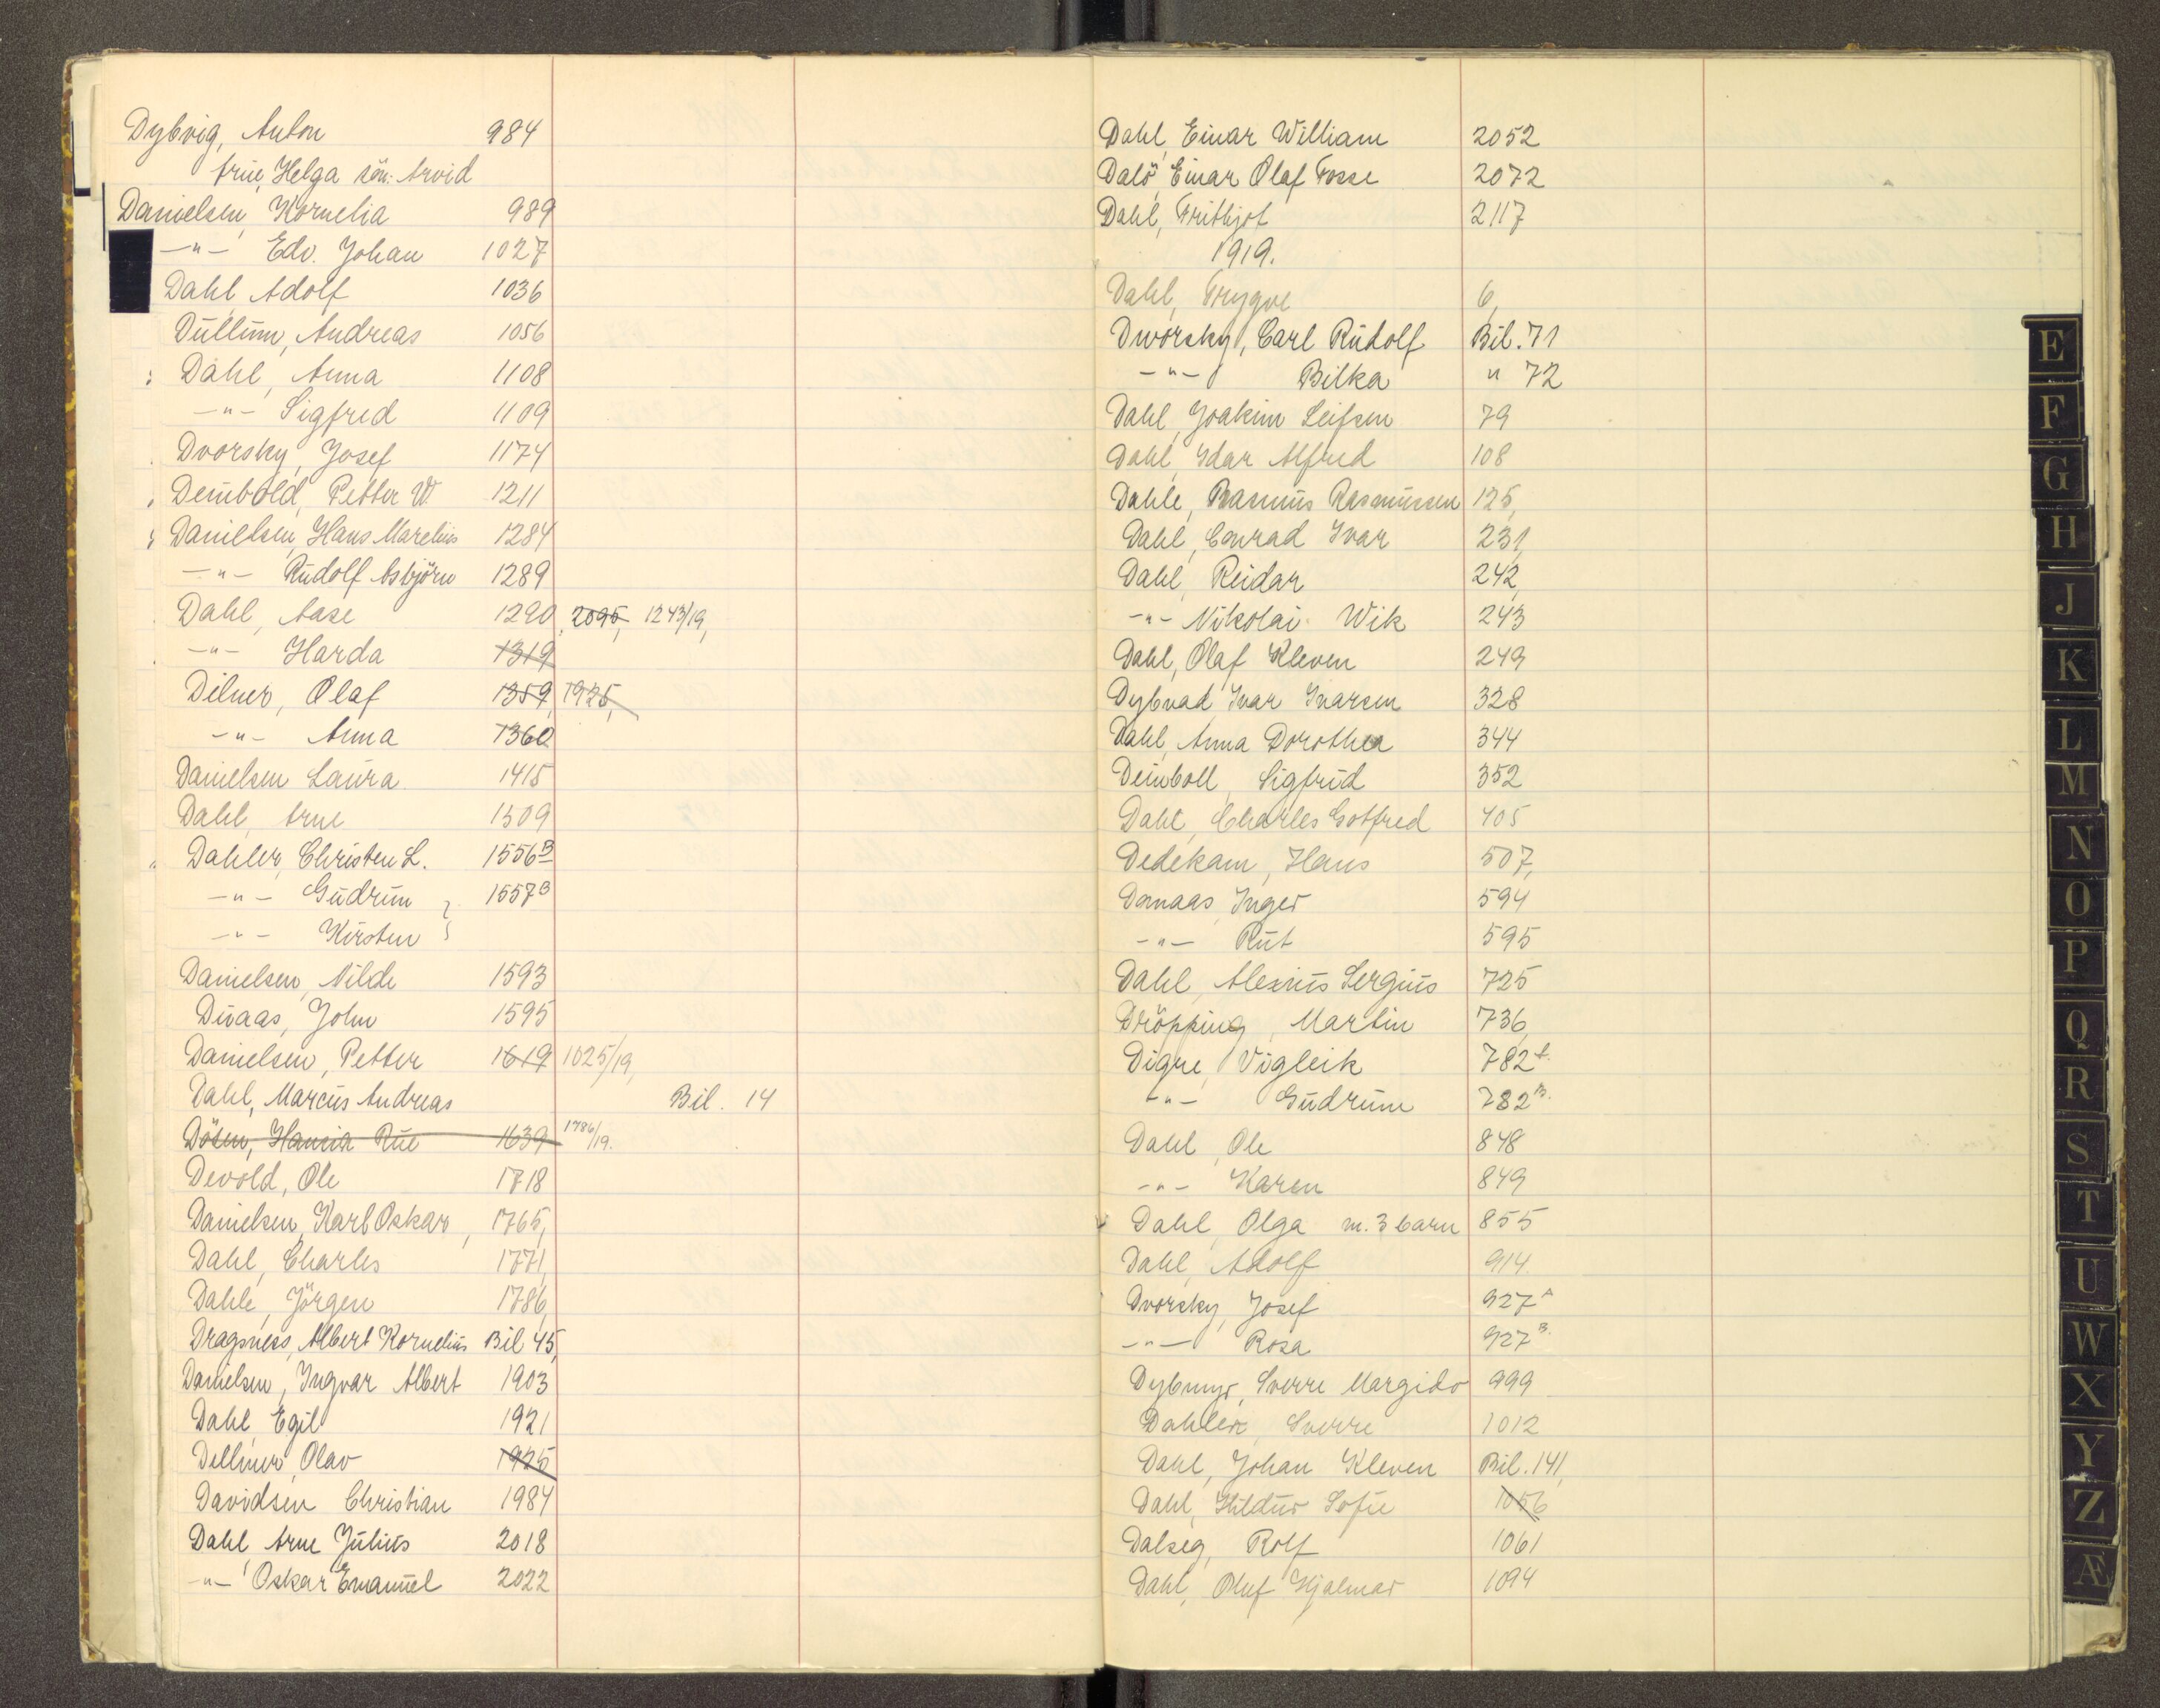 Dybvig, Anton 984
frue, Helga sön: Arvid
Danielsen, Kornelia 989
-"- Edv. Johan 1027
Dahl Adolf 1036
Düllüm, Andreas 1056
Dahl, Anna 1108
-"- Sigfred 1109
Dvorsky, Josef 1174
Deinbold, Petter W. 1211
Danielsen, Hans Marelius 1284
-"- Rudolf Asbjörn 1289
Dahl, Aase 1290, 2095, 1243/19,
-"- Harda 1319
Dilner, Olaf 1359, 1925,
-"- Anna 1360
Danielsen Laura 1415
Dahl, Arne 1509
Dahler, Christen L. 1556 B
-"- Gudrun 1557 B
-"- Kirsten
Danielsen, Nilde 1593
Divaas, John 1595
Danielsen, Petter 1619 1025/19,
Dahl, Marcus Andreas Bil. 14
Dösen, Rue 1639 1786/19.
Devold, Ole 1718
Danielsen, Karl Oskar, 1765,
Dahl, Charles 1771,
Dahle, Jörgen 1786,
Dragsness, Albert Kornelius Bil 45,
Danielsen, Ingvar Albert 1903
Dahl, Egil 1921
Dellner, Olav 1925
Davidsen Christian 1984
Dahl, Arne Julius 2018
-"- Oskar Emanuel 2022
Dahl, Einar William 2052
Dalö, Einar Olaf Fosse 2072
Dahl, Frithjof 2117
1919.
Dahl, Trygve 6,
Dworsky, Carl Rudolf Bil. 71
-"- Bilka " 72
Dahl, Joakim Leifsen 79
Dahl, Idar Alfred 108
Dahle, Rasmus Rasmussen 125,
Dahl, Conrad Ivar 231,
Dahl, Reidar 242,
-"- Nikolai Wik 243
Dahl, Olaf Kleven 249
Dybvad Ivar Ivarsen 328
Dahl, Anna Dorothea 344
Deinboll, Sigfrid 352
Dahl, Charles Gotfred 405
Dedekam, Hans 507,
Danaas, Inger 594
-"- Rut 595
Dahl, Alexius Sergius 725
Dröpping, Martin 736,
Digre, Vigleik 782 A.
-"- Gudrun 782 B.
Dahl, Ole 848
-"- Karen 849
Dahl, Olga m. 3 barn 855
Dahl, Adolf 914.
Dvorsky, Josef 927 A
-"- Rosa 927 B.
Dybmyr, Sverre Margido 999
Dahler, Sverre 1012
Dahl, Johan Kleven Bil. 141,
Dahl, Hildur Sofie 1056
Dalseg, Rolf 1061
Dahl, Oluf Hjalmar 1094
E
F
G
H
J
K
L
M
N
O
P
Q
R
S
T
U
W
X
Y
Z
Æ